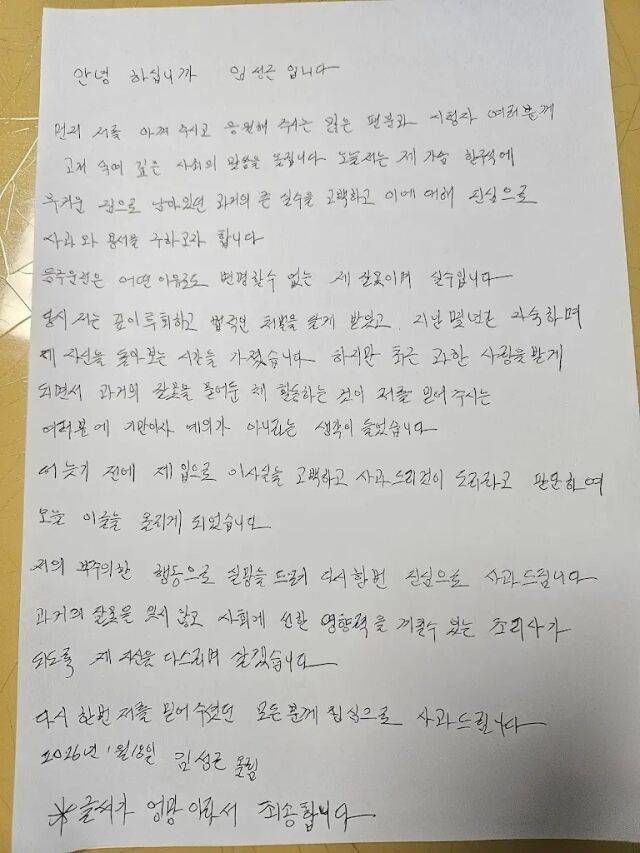 안녕 하십니까 임성근 입니다
먼저 저를 아껴 주시고 응원해 주시는 많은 팬분과 시청자 여러분께
고개 숙여 깊은 사죄의 말씀을 올립니다 오늘 저는 제 가슴 한구석에
무거운 짐으로 남아있던 과거의 큰 실수를 고백하고 이에 대해 진심으로
사과와 용서를 구하고자 합니다
음주운전은 어떤 이유로도 변명할수 없는 제 잘못이며 실수입니다
당시 저는 깊이 후회하고 법적인 처벌을 달게 받았고 지난 몇년간 자숙하며
제 자신을 돌아보는 시간을 가졌습니다 하지만 최근 과한 사랑을 받게
되면서 과거의 잘못을 묻어둔 채 활동하는 것이 저를 믿어 주시는
여러분에 기만이자 예의가 아니라는 생각이 들었습니다
더 늦기 전에 제 입으로 이사실을 고백하고 사과 드리는것이 도리라고 판단하여
오늘 이글을 올리게 되었습니다
저의 부주의한 행동으로 실망을 드려 다시한번 진심으로 사과드립니다
과거의 잘못을 잊지 않고 사회에 선한 영향력을 끼칠수 있는 조리사가
되도록 제 자신을 다스리며 살겠습니다
다시 한번 저를 믿어 주셨던 모든 분께 진심으로 사과드립니다
2026년 1월 18일 임성근 올림
※글씨가 엉망이라서 죄송합니다